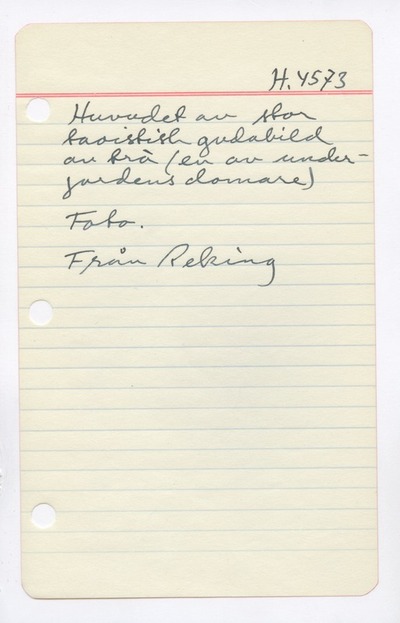 H.4573
Huvudet av stor
taoistisk gudabild
av trä (en av under-
jordens domare)
Foto.
Från Peking